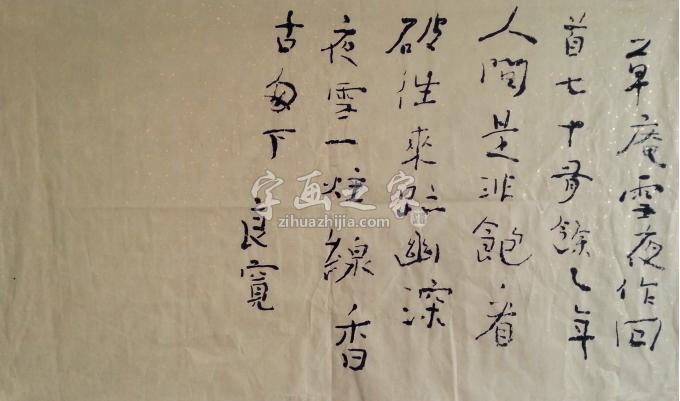 草庵雪夜作回
首七十有餘年
人間是非飽看
破往來跡幽深
夜雪一炷線香
古匆下
良寬
字画之家
zihuazhijia.com